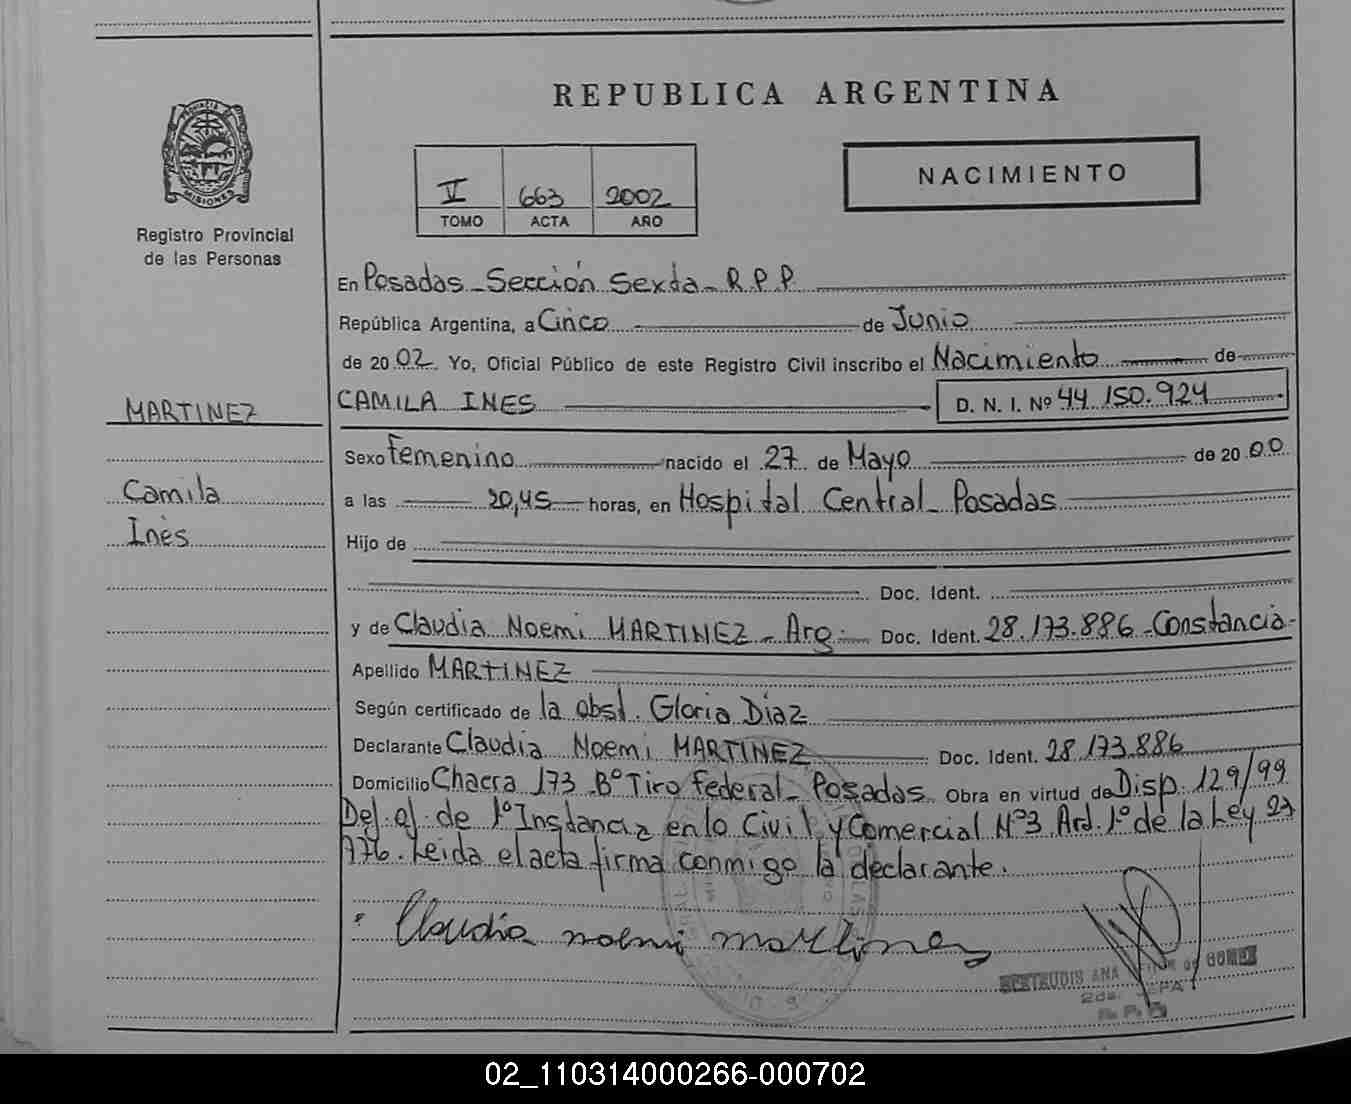 REPUBLICA ARGENTINA
NACIMIENTO
V 663 2002
TOMO ACTA AÑO
PROVINCIA
MISIONES
Registro Provincial
de las Personas
En Posadas - Sección Sexta - R.P.P.
República Argentina, a Cinco de Junio
de 2002 Yo, Oficial Público de este Registro Civil inscribo el Nacimiento de
MARTINEZ
CAMILA INES D. N. I. Nº 44 150.924
Sexo Femenino nacido el 27 de Mayo de 2000
Camila
Inés
a las 20,45 horas, en Hospital Central - Posadas
Hijo de
Doc. Ident.
y de Claudia Noemi MARTINEZ - Arg. Doc. Ident. 28.173.886 - Constancia -
Apellido MARTINEZ
Según certificado de la obst. Gloria Diaz
Declarante Claudia Noemi MARTINEZ Doc. Ident. 28.173.886
Domicilio Chacra 173 - Bº Tiro Federal - Posadas Obra en virtud de Disp. 129/99
Del. of. de 1º Instancia en lo Civil y Comercial Nº3 Art. 1º de la Ley
776. Leida el acta firma conmigo la declarante.
Claudia noemi martinez
GERTRUDIS ANA DE GOMEZ
2da. JEFA
R. P. P.
02_110314000266-000702